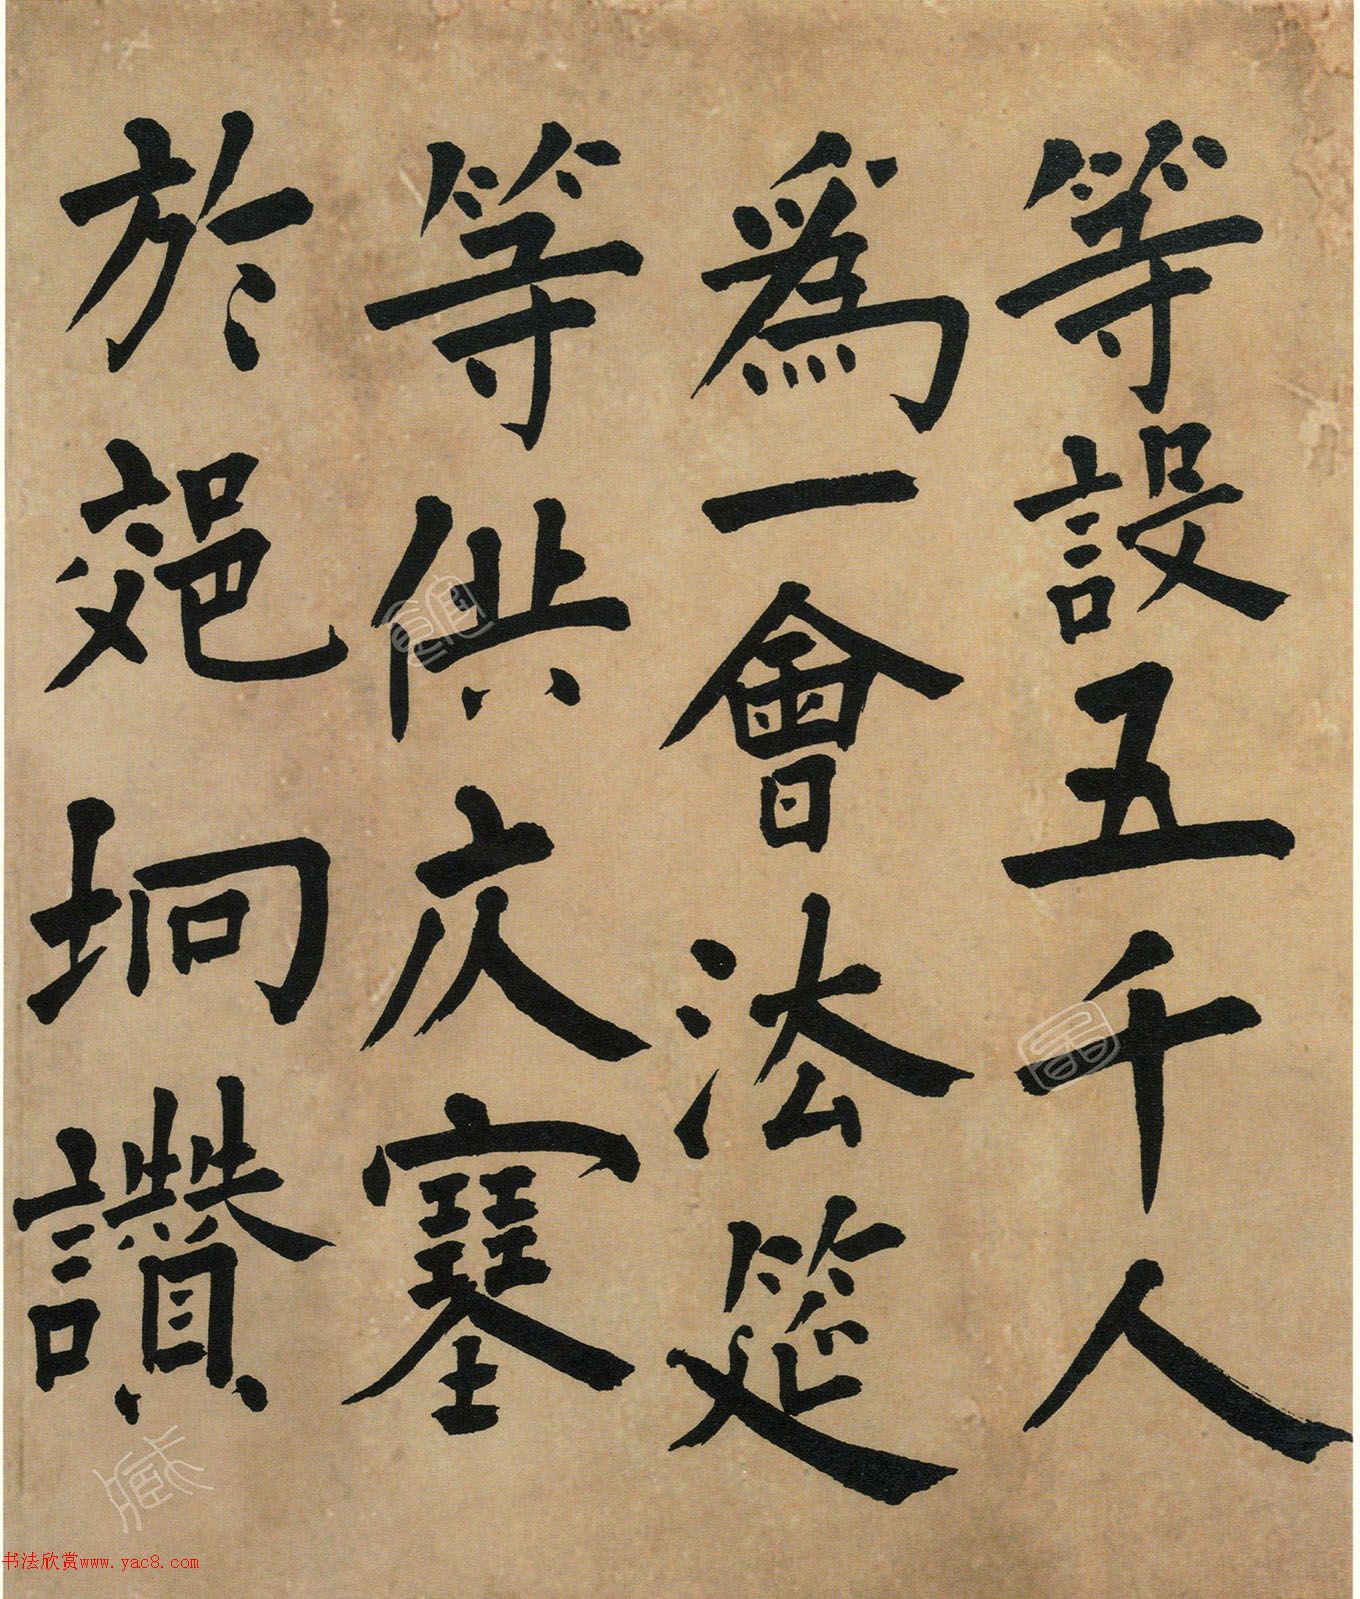 等設五千人
爲一會法筵
等供庂塞
於郊坰讚
书法欣赏www.yac8.com